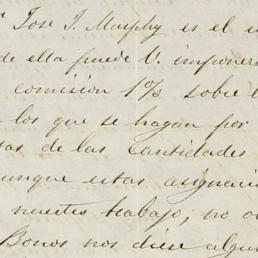 r José J. Murphy es el
de ella puede V. imponer
comisión 1% sobre
los que se hagan por
tas de las cantidades
unque estas asignaci
nuestro trabajo; no
Bonos nos diese algu